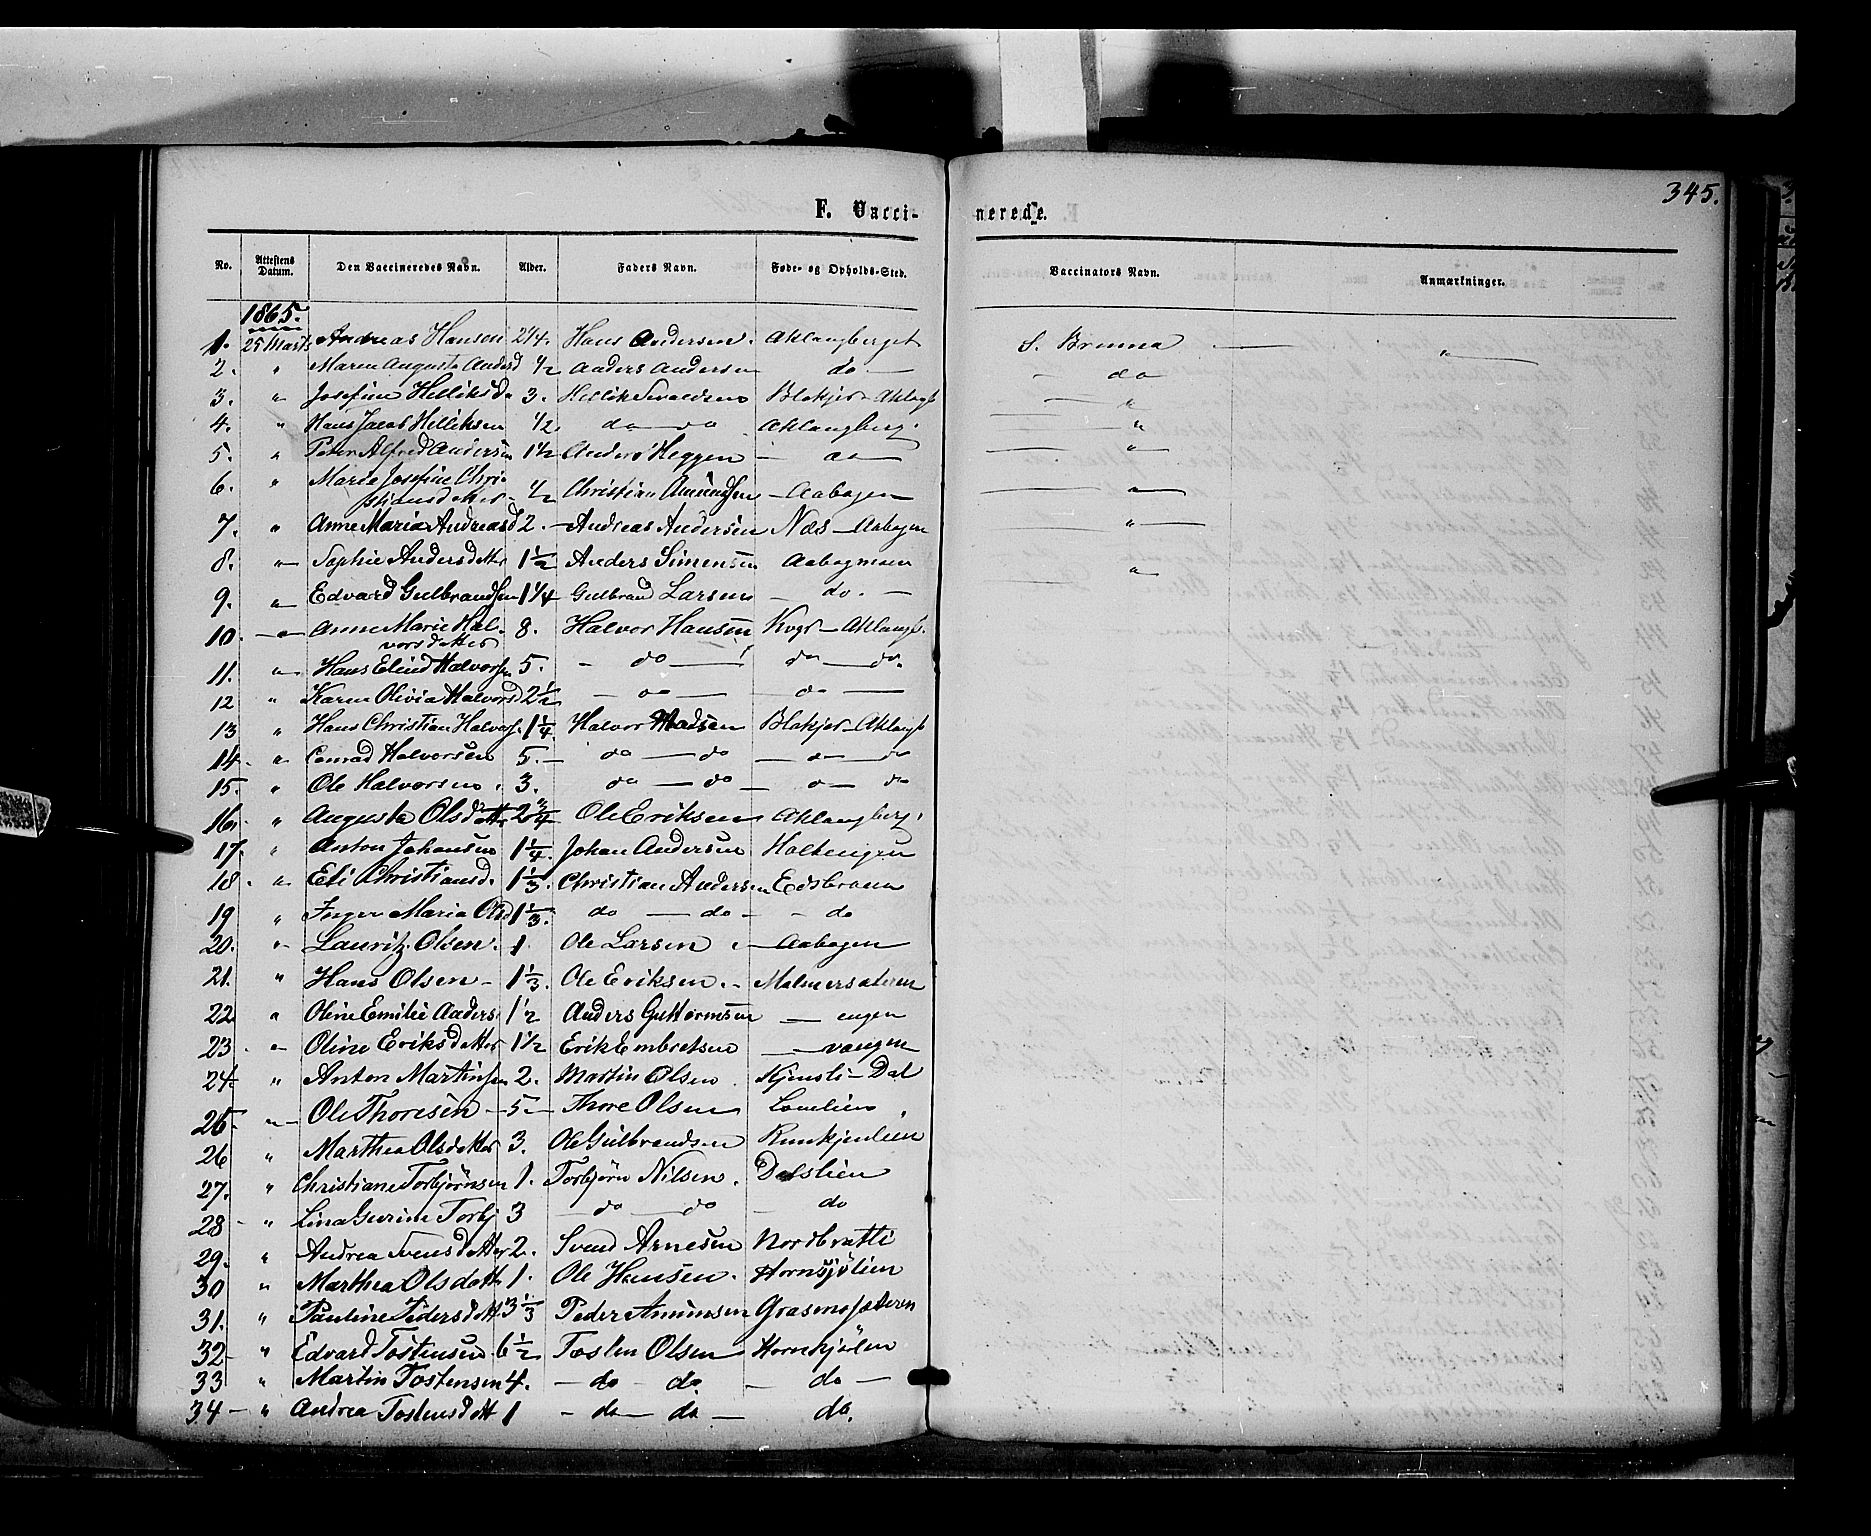 345.
F. Vaccinerede.
No. Attestens Datum. Den Vaccineredes Navn. Alder. Faders Navn. Føde- og Opholds-Sted. Vaccinators Navn. Anmærkninger.
1865.
1. 25 Marts Andreas Hansen 2 1/4. Hans Andersen. Aklangberget S. Brenna — "
2. " Maren Augusta Andersd 1/2 Anders Andersen do — do
3. " Josefine Helliksd. 3. Hellik Blakjer - Aklangb "
4. " Hans Jacob Helliksen 1/2. do do Aklangberg. "
5. " Peter Alfred Andersen 1 1/2 Anders Heggen — do — "
6. " Maria Josefine Chri-
stiansdatter - 1/2 Christian Amundsen — Aabogen — "
7. " Anne Maria Andreasd 2. — Andreas Andersen Næs — Aabogen "
8. " Sophie Andersdatter 1 1/2 Anders Simensen Aabogmoen "
9. " Edvard Gulbrandsen 1 1/4 Gulbrand Larsen — do. —
10. — " Anne Marie Hal-
vorsdatter 8. Halvor Hansen — Aklangb.
11. " Hans Halvorsen 5. — do — do — do.
12 " Karen Olivia Halvorsd 2 1/2 — do — — do —
13 " Hans Christian Halvors. 1 1/4. Halvor Madsen Blakjer — Aklangb
14. " Conrad Halvorsen 5. — do — do — do — do
15. " Ole Halvorsen. 3. do — do — do — do
16. " Augusta Olsdatter 2 3/4 Ole Eriksen Aklangberg.
17. " Anton Johansen 1 1/4. Johan Andersen
18. " Eli Christiansd. 1 1/3. Christian Andersen Eidsbraaen
19 " Inger Maria Olsd 1 1/3. do — do — — do
20. " Lauritz Olsen. 1. Ole Larsen. — Aabogen
21. " Hans Olsen — 1 1/3. Ole Eriksen. — Malmersæteren
22 " Oline Emilie Anders. 1 1/2 Anders Guttormsen — engen
23 . " Oline Eriksdatter 1 1/2 Erik Embretsen — vangen
24. " Anton Martinsen 2. Martin Olsen. Kjensli - Dal
25. " Ole Thoresen — 5 — Thore Olsen
26 " Marthea Olsdatter 3. Ole Gulbrandsen
27. " Christiane Torbjørnsen 1. Torbjørn Nilsen. Dalslien
28 - " Lina Gurine Torbj 3 — do — do — do
29. " Andrea Svensdatter 2. Svend Arnesen Nordbratti
30 " Marthea Olsdatt 1. Ole Hansen. Hornsjølien
31. " Pauline Pedersdatt 3 1/3 Peder Amundsen Grasmosæteren
32 - " Edvard Tostensen 6 1/2 Tosten Olsen
33 " Martin Tostensen 4. — do — do — do —
34 — " Andrea Tostensdatt 1 — do — do — do.